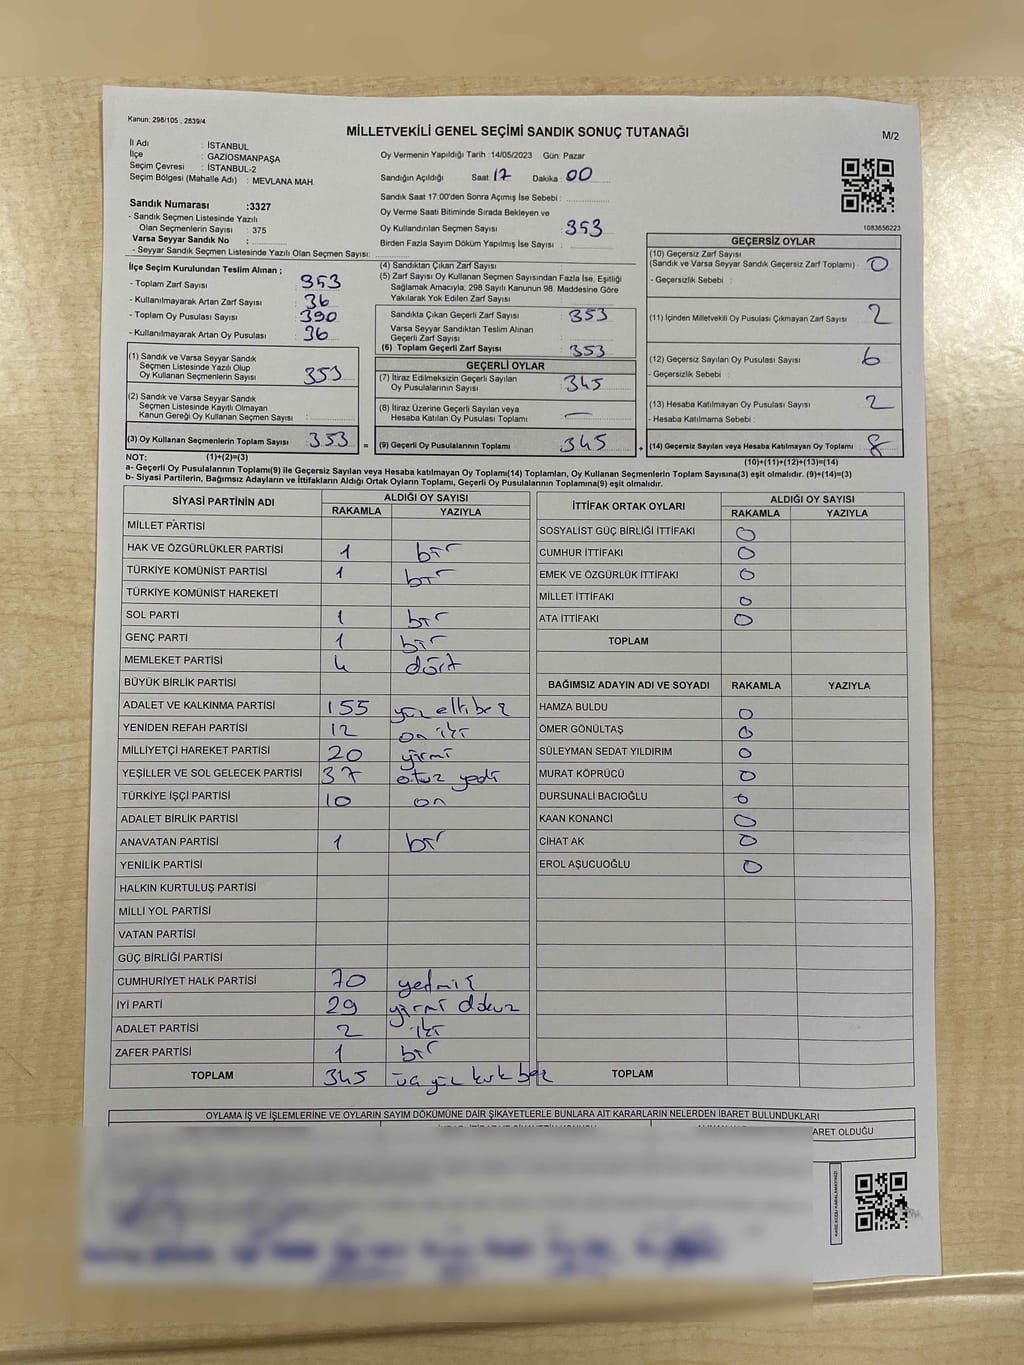 Kanun: 298/105 , 2839/4
MİLLETVEKİLİ GENEL SEÇİMİ SANDIK SONUÇ TUTANAĞI
M/2
İl Adı : İSTANBUL
İlçe : GAZİOSMANPAŞA
Seçim Çevresi : İSTANBUL-2
Seçim Bölgesi (Mahalle Adı) : MEVLANA MAH.
Oy Vermenin Yapıldığı Tarih :14/05/2023 Gün: Pazar
Sandığın Açıldığı Saat: 17 Dakika: 00
Sandık Saat 17:00'den Sonra Açımış İse Sebebi :
Oy Verme Saati Bitiminde Sırada Bekleyen ve
Oy Kullandırılan Seçmen Sayısı : 353
Birden Fazla Sayım Döküm Yapılmış İse Sayısı :
1083656223
Sandık Numarası :3327
- Sandık Seçmen Listesinde Yazılı
Olan Seçmenlerin Sayısı : 375
Varsa Seyyar Sandık No :
- Seyyar Sandık Seçmen Listesinde Yazılı Olan Seçmen Sayısı:
İlçe Seçim Kurulundan Teslim Alınan ;
- Toplam Zarf Sayısı : 953
- Kullanılmayarak Artan Zarf Sayısı : 36
- Toplam Oy Pusulası Sayısı : 390
- Kullanılmayarak Artan Oy Pusulası : 36
(1) Sandık ve Varsa Seyyar Sandık
Seçmen Listesinde Yazılı Olup
Oy Kullanan Seçmenlerin Sayısı : 353
(2) Sandık ve Varsa Seyyar Sandık
Seçmen Listesinde Kayıtlı Olmayan
Kanun Gereği Oy Kullanan Seçmen Sayısı :
(3) Oy Kullanan Seçmenlerin Toplam Sayısı : 353 =
(4) Sandıktan Çıkan Zarf Sayısı :
(5) Zarf Sayısı Oy Kullanan Seçmen Sayısından Fazla İse, Eşitliği
Sağlamak Amacıyla; 298 Sayılı Kanunun 98. Maddesine Göre
Yakılarak Yok Edilen Zarf Sayısı :
Sandıkta Çıkan Geçerli Zarf Sayısı : 353
Varsa Seyyar Sandıktan Teslim Alınan
Geçerli Zarf Sayısı :
(6) Toplam Geçerli Zarf Sayısı : 353
GEÇERLİ OYLAR
(7) İtiraz Edilmeksizin Geçerli Sayılan
Oy Pusulalarının Sayısı : 345
(8) İtiraz Üzerine Geçerli Sayılan veya
Hesaba Katılan Oy Pusulası Toplamı : —
(9) Geçerli Oy Pusulalarının Toplamı : 345 +
GEÇERSİZ OYLAR
(10) Geçersiz Zarf Sayısı
(Sandık ve Varsa Seyyar Sandık Geçersiz Zarf Toplamı) : 0
- Geçersizlik Sebebi :
(11) İçinden Milletvekili Oy Pusulası Çıkmayan Zarf Sayısı : 2
(12) Geçersiz Sayılan Oy Pusulası Sayısı : 6
- Geçersizlik Sebebi :
(13) Hesaba Katılmayan Oy Pusulası Sayısı : 2
- Hesaba Katılmama Sebebi :
(14) Geçersiz Sayılan veya Hesaba Katılmayan Oy Toplamı : 8
NOT: (1)+(2)=(3) (10)+(11)+(12)+(13)=(14)
a- Geçerli Oy Pusulalarının Toplamı(9) ile Geçersiz Sayılan veya Hesaba katılmayan Oy Toplamı(14) Toplamları, Oy Kullanan Seçmenlerin Toplam Sayısına(3) eşit olmalıdır. (9)+(14)=(3)
b- Siyasi Partilerin, Bağımsız Adayların ve İttifakların Aldığı Ortak Oyların Toplamı, Geçerli Oy Pusulalarının Toplamına(9) eşit olmalıdır.
SİYASİ PARTİNİN ADI ALDIĞI OY SAYISI
RAKAMLA YAZIYLA
MİLLET PARTİSİ
HAK VE ÖZGÜRLÜKLER PARTİSİ 1 bir
TÜRKİYE KOMÜNİST PARTİSİ 1 bir
TÜRKİYE KOMÜNİST HAREKETİ
SOL PARTİ 1 bir
GENÇ PARTİ 1 bir
MEMLEKET PARTİSİ 4 dört
BÜYÜK BİRLİK PARTİSİ
ADALET VE KALKINMA PARTİSİ 155 yüz elli beş
YENİDEN REFAH PARTİSİ 12 on iki
MİLLİYETÇİ HAREKET PARTİSİ 20 yirmi
YEŞİLLER VE SOL GELECEK PARTİSİ 37 otuz yedi
TÜRKİYE İŞÇİ PARTİSİ 10 on
ADALET BİRLİK PARTİSİ
ANAVATAN PARTİSİ 1 bir
YENİLİK PARTİSİ
HALKIN KURTULUŞ PARTİSİ
MİLLİ YOL PARTİSİ
VATAN PARTİSİ
GÜÇ BİRLİĞİ PARTİSİ
CUMHURİYET HALK PARTİSİ 70 yetmiş
İYİ PARTİ 29 yirmi dokuz
ADALET PARTİSİ 2 iki
ZAFER PARTİSİ 1 bir
TOPLAM 345 üç yüz kırk beş
İTTİFAK ORTAK OYLARI ALDIĞI OY SAYISI
RAKAMLA YAZIYLA
SOSYALİST GÜÇ BİRLİĞİ İTTİFAKI 0
CUMHUR İTTİFAKI 0
EMEK VE ÖZGÜRLÜK İTTİFAKI 0
MİLLET İTTİFAKI 0
ATA İTTİFAKI 0
TOPLAM
BAĞIMSIZ ADAYIN ADI VE SOYADI RAKAMLA YAZIYLA
HAMZA BULDU 0
ÖMER GÖNÜLTAŞ 0
SÜLEYMAN SEDAT YILDIRIM 0
MURAT KÖPRÜCÜ 0
DURSUNALİ BACIOĞLU 0
KAAN KONANCİ 0
CİHAT AK 0
EROL AŞUCUOĞLU 0
TOPLAM
OYLAMA İŞ VE İŞLEMLERİNE VE OYLARIN SAYIM DÖKÜMÜNE DAİR ŞİKAYETLERLE BUNLARA AİT KARARLARIN NELERDEN İBARET BULUNDUKLARI
ARET OLDUĞU